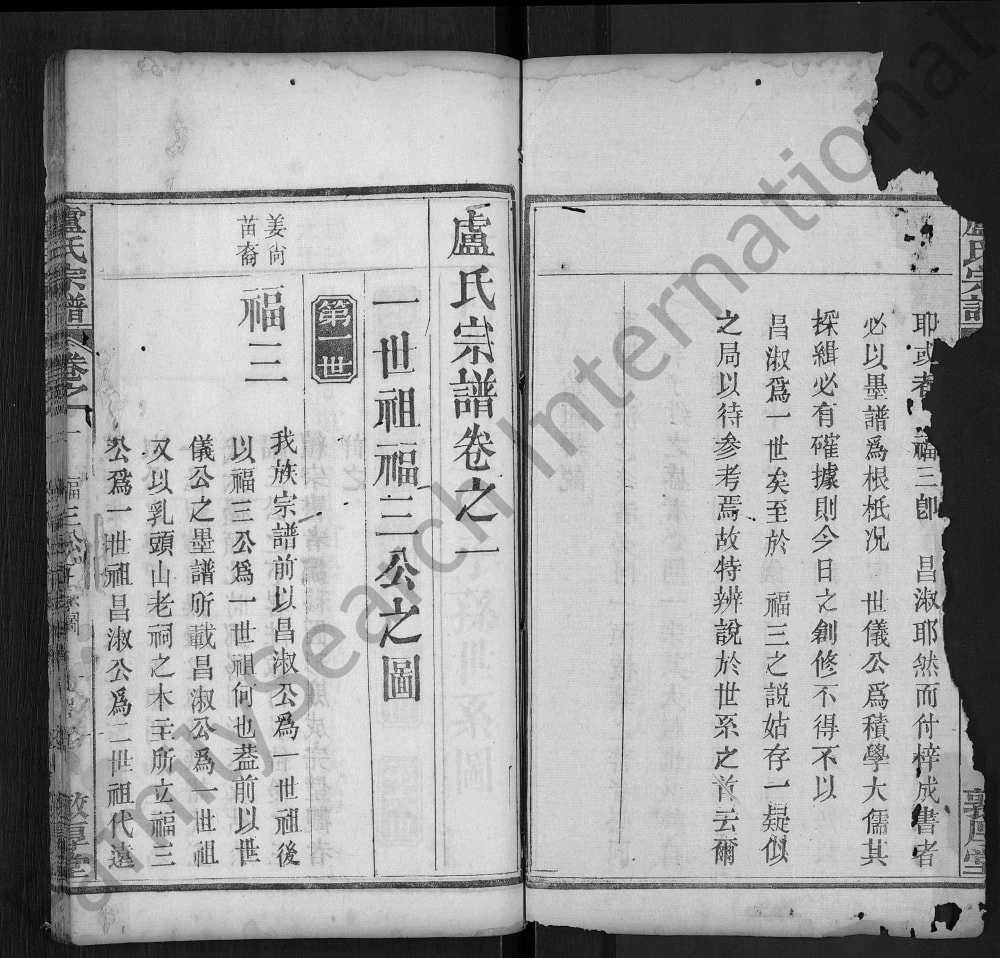 耶或者 福三卽 昌淑耶然而付梓成書者
必以墨譜爲根柢况 世儀公爲積學大儒其
採緝必有確據則今日之創修不得不以
昌淑爲一世矣至於 福三之說姑存一疑似
之局以待參考焉故特辨說於世系之首云爾
敦厚堂
盧氏宗譜卷之一
一世祖福三公之圖
第一世
姜尙
苗裔
福三
我族宗譜前以昌淑公爲一世祖後
以福三公爲一世祖何也葢前以世
儀公之墨譜所載昌淑公爲一世祖
又以乳頭山老祠之木主所立福三
公爲一世祖昌淑公爲二世祖代遠
盧氏宗譜
卷之一
福三公
敦厚堂
FamilySearch International